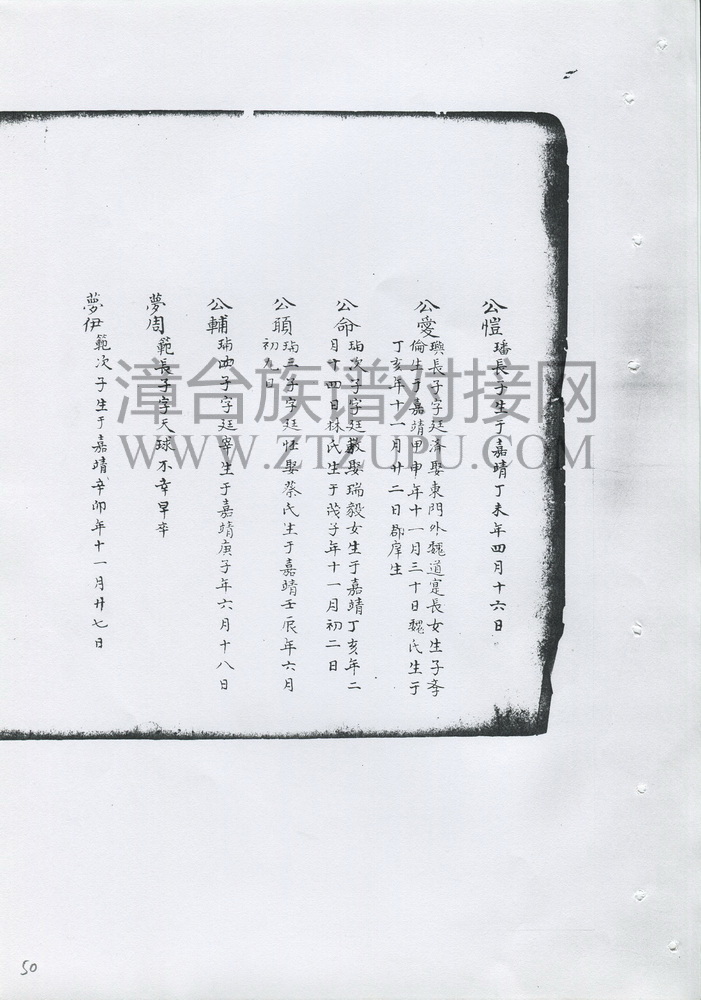 公愷 璠長子生于嘉靖丁未年四月十六日
公愛 璵長子字廷濟娶東門外魏道寔長女生子孝
倫生于嘉靖甲申年十一月三十日魏氏生于
丁亥年十一月廿二日郡庠生
公命 瑀次子字廷 娶瑞毅女生于嘉靖丁亥年二
月十四日林氏生于戊子年十一月初二日
公頤 瑀三子字廷 娶蔡氏生于嘉靖壬辰年六月
初九日
公輔 瑀四子字廷宰生于嘉靖庚子年六月十八日
夢周 範長子字天球不幸早卒
夢伊 範次子生于嘉靖辛卯年十一月廿七日
漳台族谱对接网
WWW.ZTZUPU.COM
50